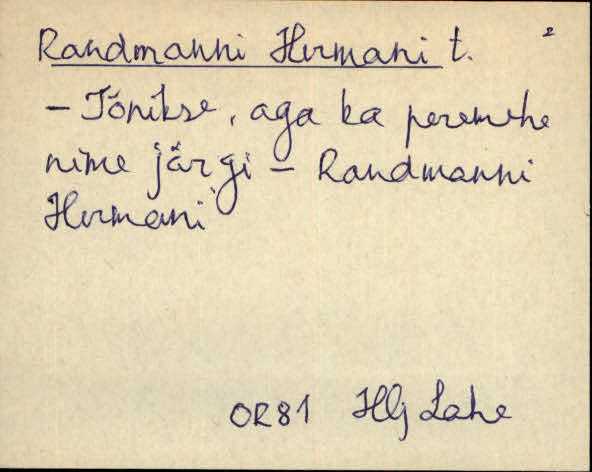 Randmanni Hermani t. 2
- Tõnikse, aga ka peremehe
nime järgi - Randmanni
Hermani
OR81 Hlj Lahe